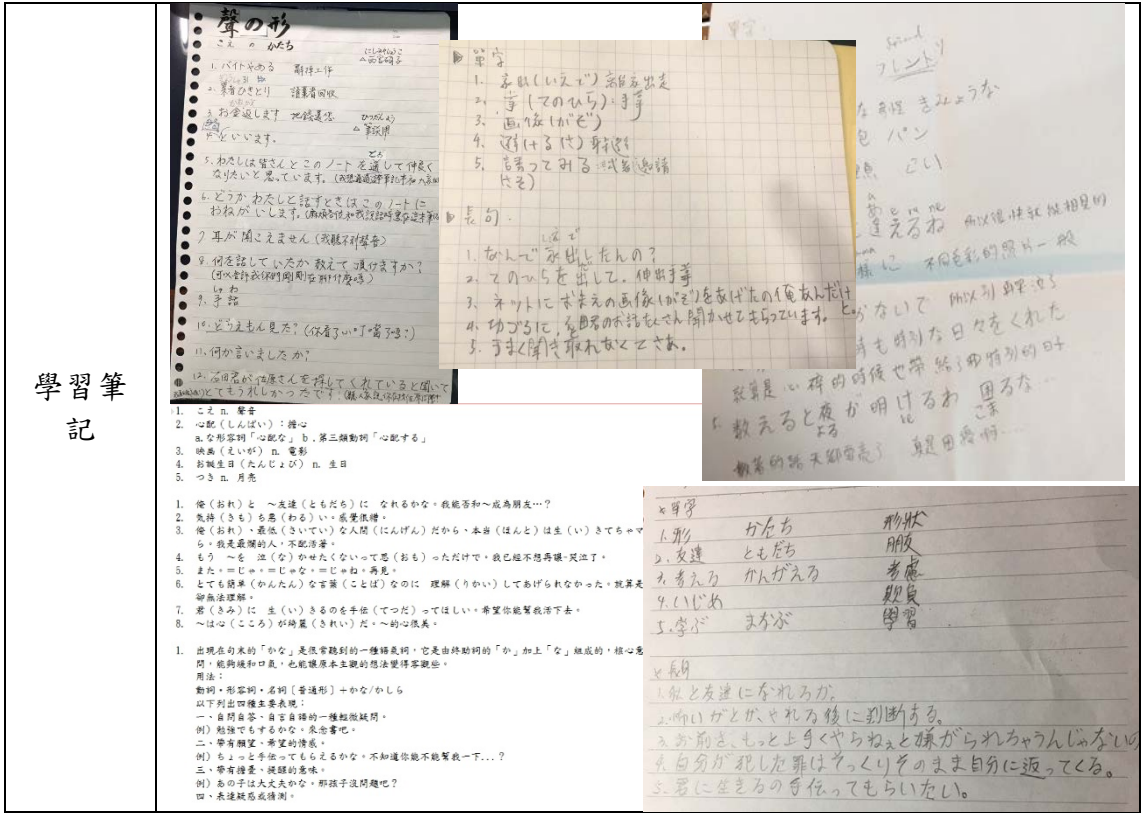 學習筆
記
聲の形
こえ の かたち
にしみやしょうこ
△西宮硝子
1. バイトやめる 辭掉工作
2. 業者ひきとり 請業者回收
3. お金返します 把錢還您
といいます。
5. わたしは皆さんとこのノートを通して仲良く
なりたいと思っています。
6. どうかわたしと話すときはこのノートに
おねがいします。
7. 耳が聞こえません (我聽不到聲音)
8. 何を話していたか教えて頂けますか?
しゅわ
9. 手話
11. 何か言いましたか?
12. 石田君が佐原さんを探してくれていると聞いて
とてもうれしかったです!
單字
1. 家出(いえで) 離家出走
2. 掌(てのひら):手掌
3. 画像(がぞ)
4. 避ける(さ)
5. 誘ってみる 試著邀請
(さそ)
長句.
1. なんで家出したんの?
2. てのひらを出して. 伸出手掌
3. ネットにおまえの画像(がぞ)をあげたの俺なんだけど。
5. うまく聞き取れなくてさあ。
單字
フレンド
きみょうな
パン
こい
逢えるね 所以很快就能相見的
様に 不同色彩的照片一般
がないで
時も特別な日々をくれた
就算是心碎的時候也帶給了我特別的日子
数えると夜が明けるわ 困るな…
よる
こま
1. こえ n. 聲音
2. 心配(しんぱい):擔心
a.な形容詞「心配な」 b.第三類動詞「心配する」
3. 映画(えいが) n. 電影
4. お誕生日(たんじょび) n. 生日
5. つき n. 月亮
1. 俺(おれ)と ~友達(ともだち)に なれるかな。我能否和~成為朋友…?
2. 気持(きも)ち悪(わる)い。感覺很糟。
3. 俺(おれ)、最低(さいてい)な人間(にんげん)だから、本当(ほんと)は生(い)きてちゃマ
ら。我是最爛的人,不配活著。
4. もう ~を 泣(な)かせたくないって思(おも)っただけで。我已經不想再讓~哭泣了。
5. また。=じゃ。=じゃな。=じゃね。再見。
6. とても簡単(かんたん)な言葉(ことば)なのに 理解(りかい)してあげられなかった。就算是
卻無法理解。
7. 君(きみ)に 生(い)きるのを手伝(てつだ)ってほしい。希望你能幫我活下去。
8. ~は心(こころ)が綺麗(きれい)だ。~的心很美。
1. 出現在句末的「かな」是很常聽到的一種語氣詞,它是由終助詞的「か」加上「な」組成的,核心意
問,能夠緩和口氣,也能讓原本主觀的想法變得客觀些。
用法:
動詞・形容詞・名詞[普通形]+かな/かしら
以下列出四種主要表現:
一、自問自答、自言自語的一種輕微疑問。
例)勉強でもするかな。來念書吧。
二、帶有願望、希望的情感。
例)ちょっと手伝ってもらえるかな。不知道你能不能幫我一下...?
三、帶有擔憂、提醒的意味。
例)あの子は大丈夫かな。那孩子沒問題吧?
四、表達疑惑或猜測。
單字
1. 形 かたち 形狀
2. 友達 ともだち 朋友
3. 考える かんがえる 考慮
4. いじめ 欺負
5. 学ぶ まなぶ 學習
長句
1. 私と友達になれるか。
2. 怖いかとか、やれる後に判断する。
3. お前さ、もっと上手くやらねぇと嫌がられちゃうんじゃないの
4. 自分が犯した罪はそっくりそのまま自分に返ってくる。
5. 君に生きるの手伝ってもらいたい。